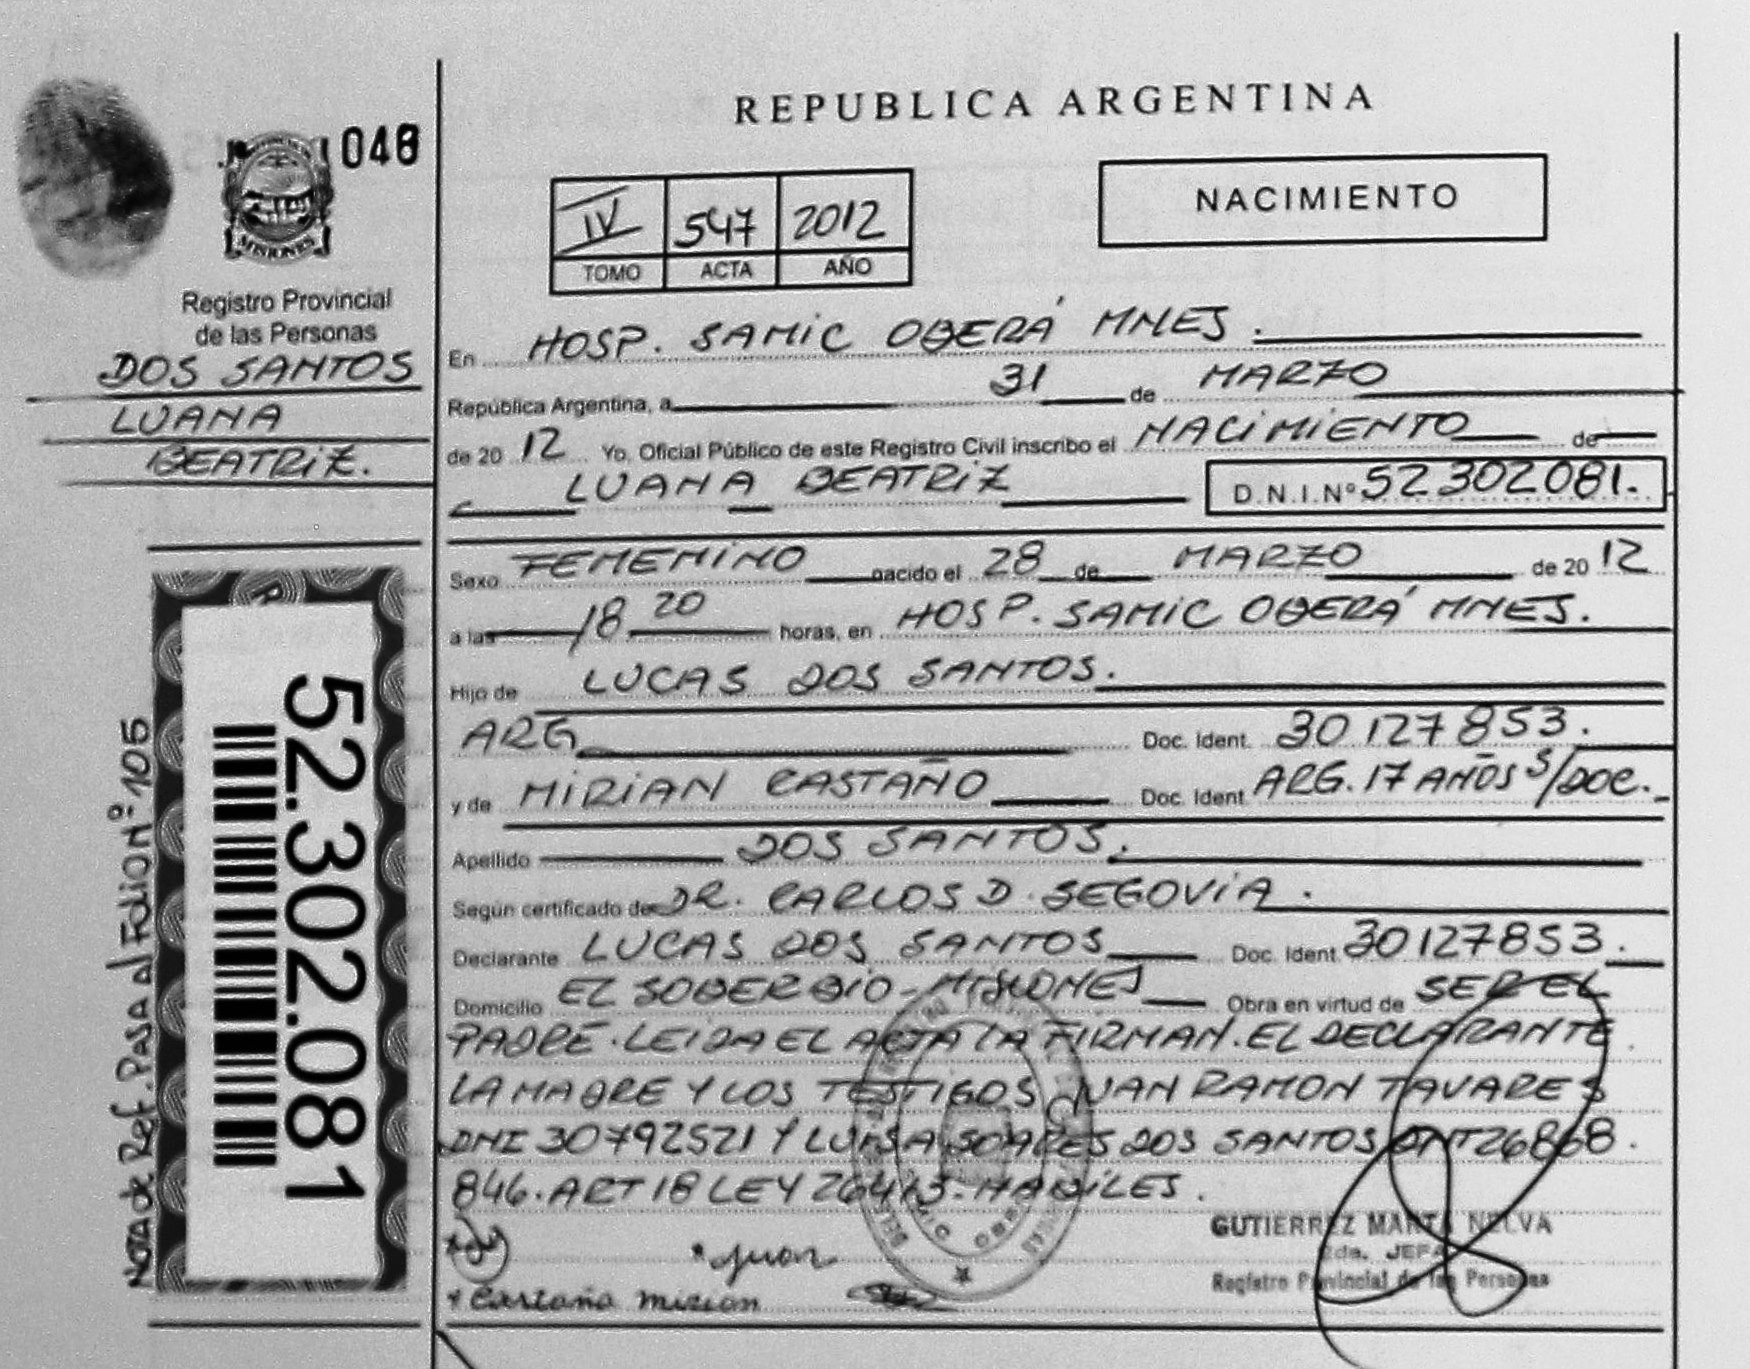 048
MISIONES
Registro Provincial
de las Personas
DOS SANTOS
LUANA
BEATRIZ.
NOTA de Ref. Pasa al Folio Nº 105
52.302.081
REPUBLICA ARGENTINA
IV 547 2012
TOMO ACTA AÑO
NACIMIENTO
En HOSP. SAMIC OBERÁ MNES.
República Argentina, a 31 de MARZO
de 20 12 Yo, Oficial Público de este Registro Civil inscribo el NACIMIENTO de
LUANA BEATRIZ D.N.I.Nº 52302081.
Sexo FEMENINO nacido el 28 de MARZO de 20 12
a las 18 20 horas, en HOSP. SAMIC OBERÁ MNES.
Hijo de LUCAS DOS SANTOS.
ARG Doc. Ident. 30127853.
y de MIRIAN CASTAÑO Doc. Ident. ARG. 17 AÑOS S/DOC.
Apellido DOS SANTOS.
Según certificado de DR. CARLOS D. SEGOVIA.
Declarante LUCAS DOS SANTOS Doc. Ident. 30127853.
Domicilio EL SOBERBIO-MISIONES Obra en virtud de SER EL
PADRE. LEIDA EL ACTA LA FIRMAN. EL DECLARANTE
LA MADRE Y LOS TESTIGOS JUAN RAMON TAVARES
DNI 30792521 Y LUISA SOARES DOS SANTOS DNI 26868.
846. ART 18 LEY 26413-HABILES.
Juan
Castaño mirian
GUTIERREZ MARTA NELVA
2da. JEFA
Registro Provincial de las Personas